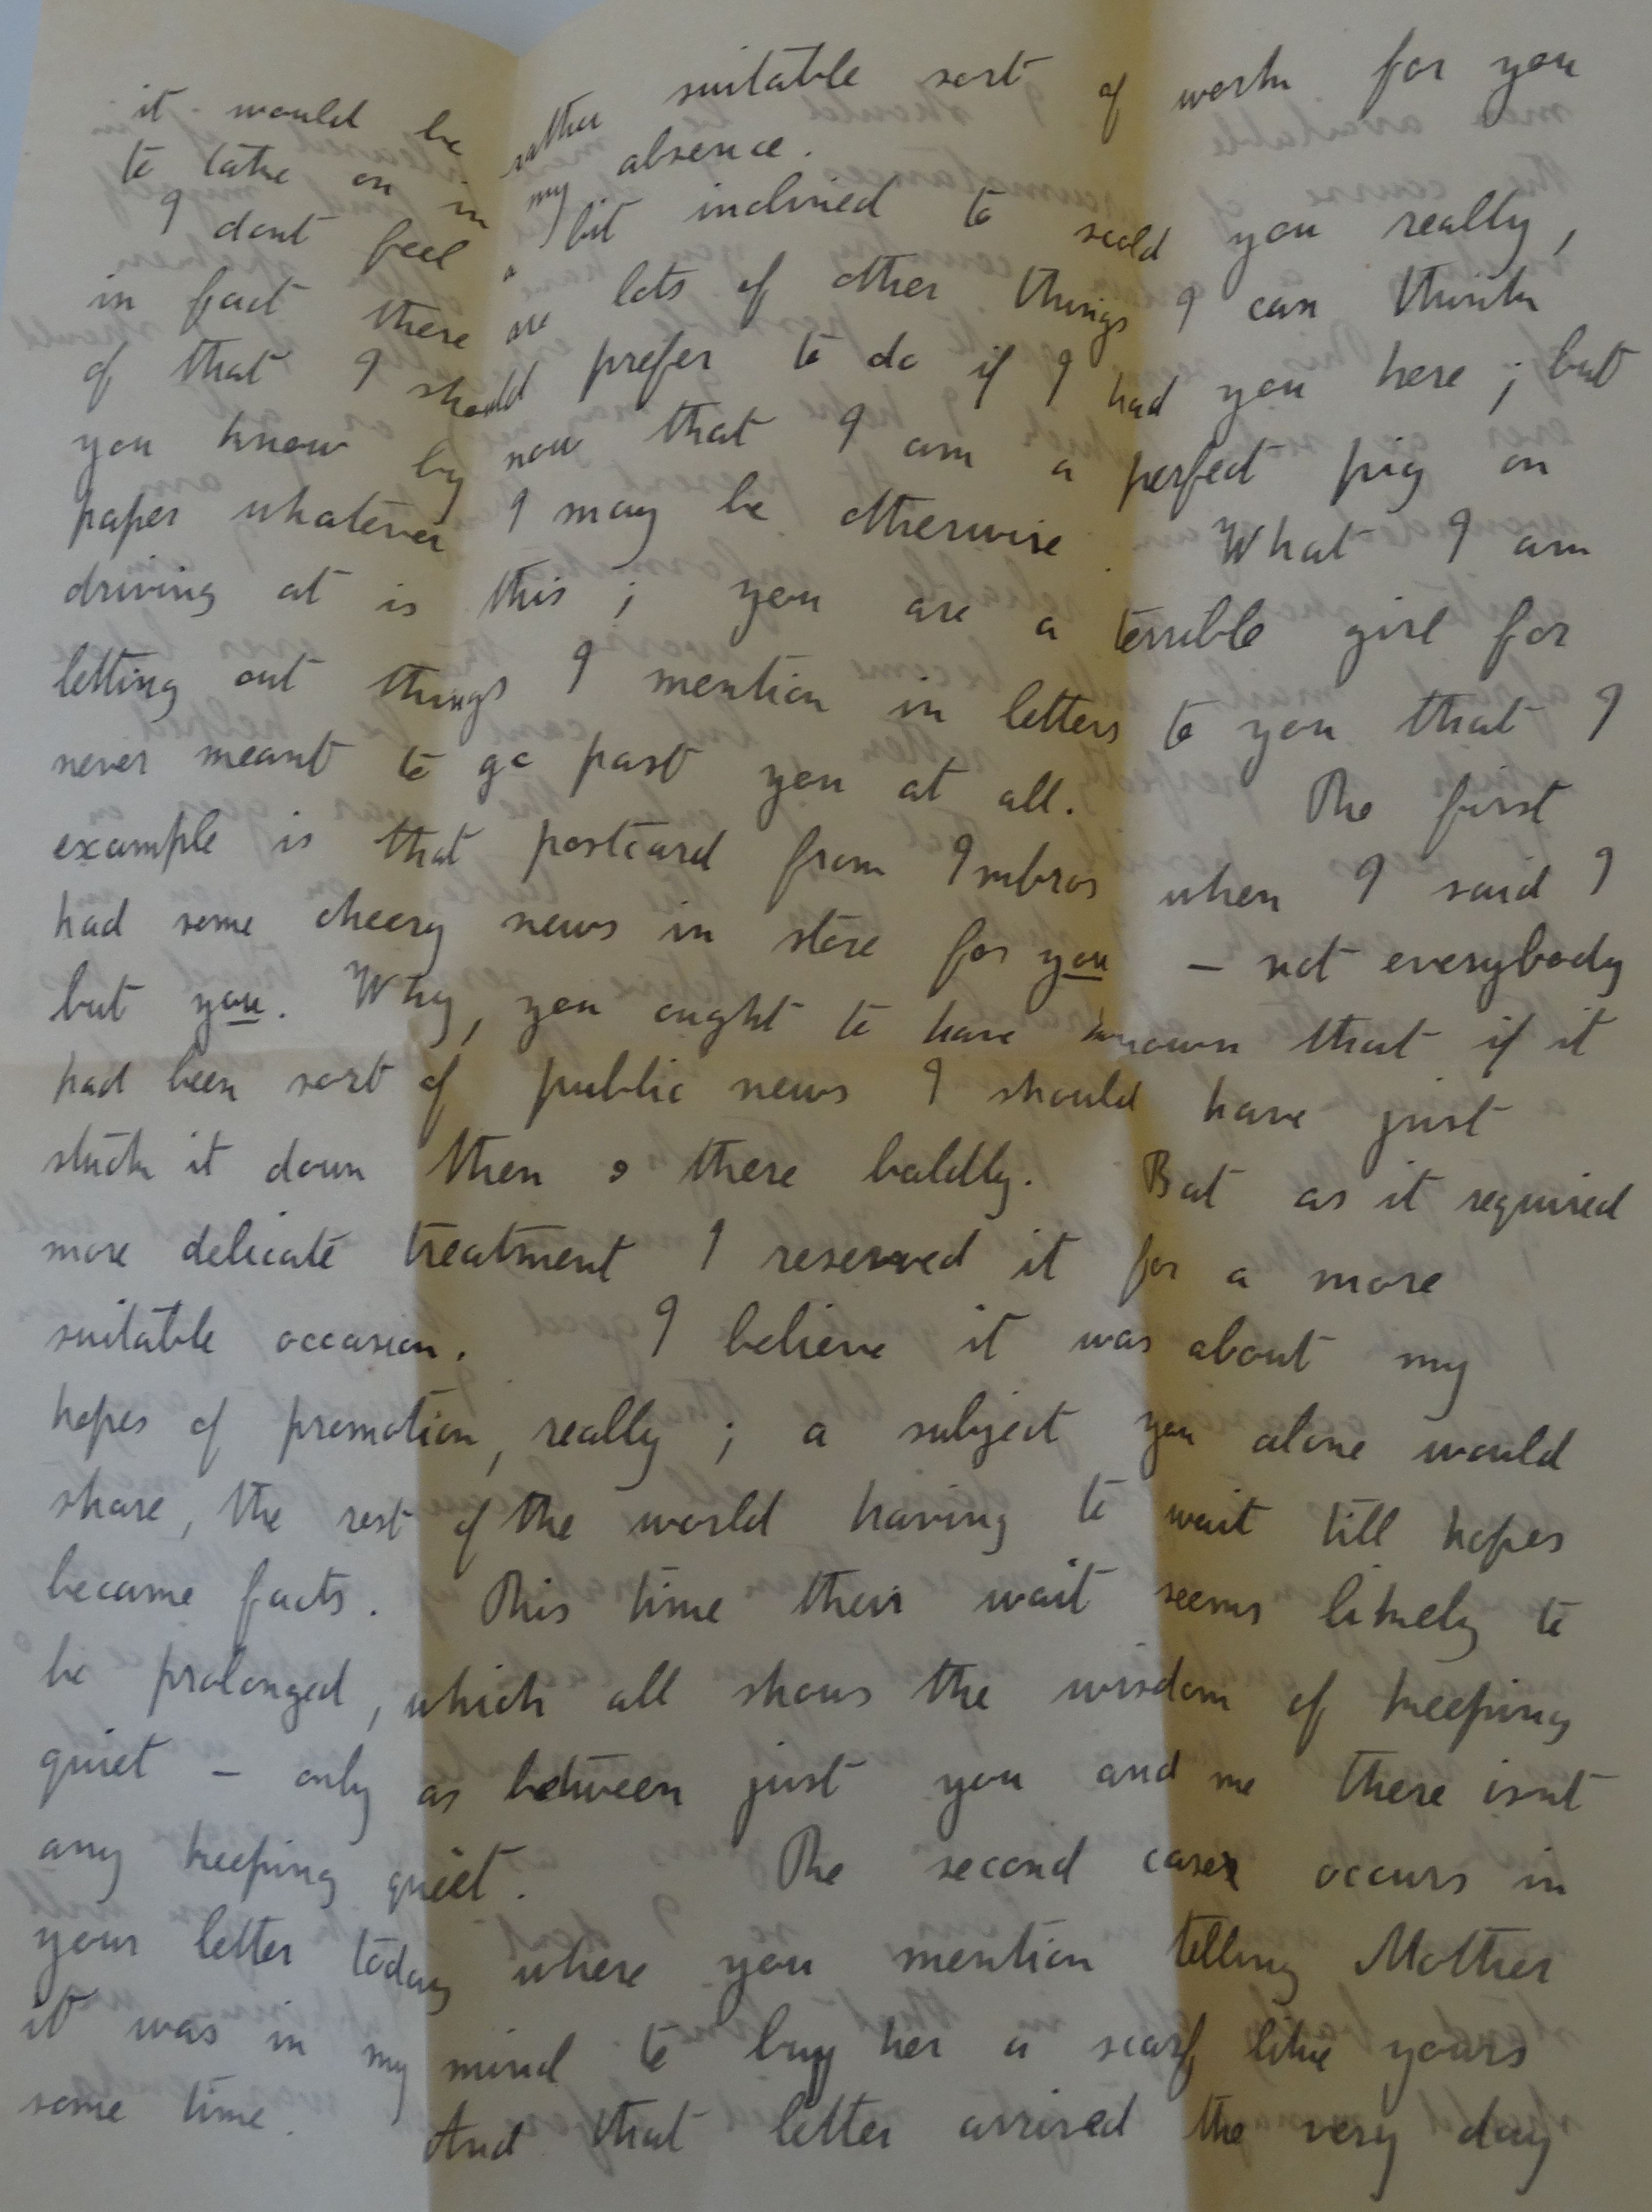 it would be rather suitable sort of work for you
to take on in my absence.
I dont feel a bit inclined to scold you really,
in fact there are lots of other things I can think
of that I should prefer to do if I had you here ; but
you know by now that I am a perfect pig on
paper whatever I may be otherwise. What I am
driving at is this ; you are a terrible girl for
letting out things I mention in letters to you that I
never meant to go past you at all. The first
example is that postcard from Imbros when I said I
had some cheery news in store for you – not everybody
but you. Why, you ought to have known that if it
had been sort of public news I should have just
stuck it down then & there baldly. But as it required
more delicate treatment I reserved it for a more
suitable occasion. I believe it was about my
hopes of promotion, really ; a subject you alone would
share, the rest of the world having to wait till hopes
became facts. This time their wait seems likely to
be prolonged, which all shows the wisdom of keeping
quiet – only as between just you and me there isnt
any keeping quiet. The second case occurs in
your letter today where you mention telling Mother
it was in my mind to buy her a scarf like yours
some time. And that letter arrived the very day